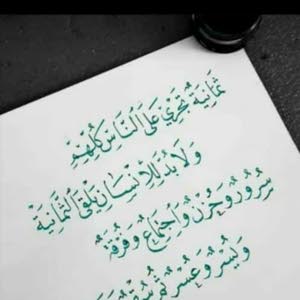 ثَمَانِيَةٌ تَجْرِي عَلَى النَّاسِ كُلِّهِمْ
وَلَا بُدَّ لِلْإِنْسَانِ يَلْقَى الثَّمَانِيَةَ
سُرُورٌ وَحُزْنٌ وَاجْتِمَاعٌ وَفُرْقَةٌ
وَيُسْرٌ وَعُسْرٌ ثُمَّ سُقْمٌ